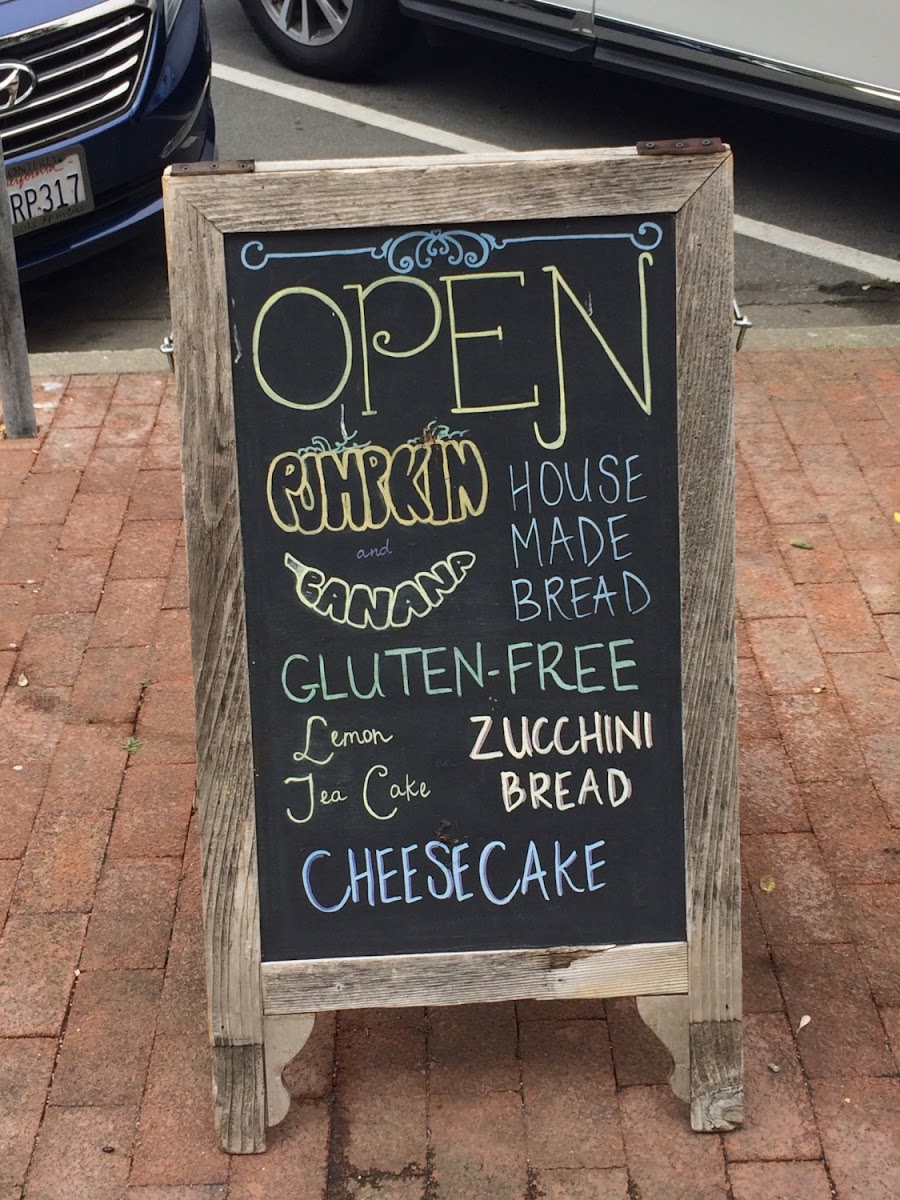 OPEN
PUMPKIN
and
BANANA
HOUSE
MADE
BREAD
GLUTEN-FREE
Lemon
Tea Cake
ZUCCHINI
BREAD
CHEESECAKE
RP·317